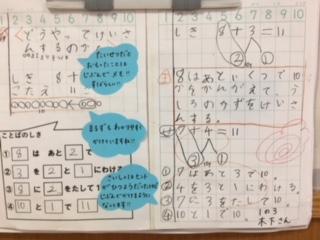 1 2 3 4 5 6 7 8 9 10
どうやってけいさ
んするのかな
しき 8+
こたえ 11
10
たいせつだと
おもったことは
じぶんでメモ!!
すばらしい!
まるずもわかりやすく
かけていますね!!
ことばのしき
① 8 は あと 2 で
② 3 を 2 と 1 にわけ
③ 8 に 2 をたして1
④ 10 と 1 で 11
1 2 3 4 5 6 7 8 9 10
しき 8+3=11
② ①
8はあといくつで10
かをかんがえて、う
しろのかずをけいさ
んする。
7+4=11
10 ③ ①
①7はあと3で10。
②4を3と1にわける。
③7に3をたして10。
④10と1で11。
1の3
木下さん